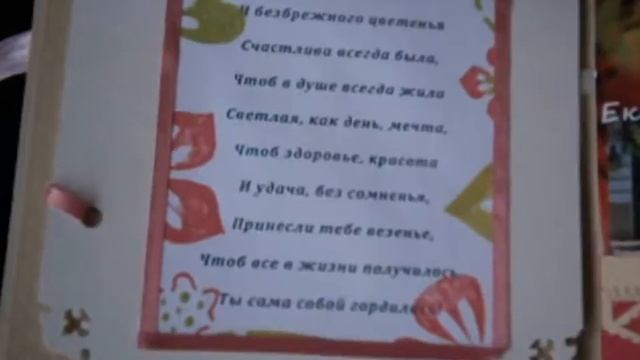 И безбрежного цветенья
Счастлива всегда была,
Чтоб в душе всегда жила
Светлая, как день, мечта,
Чтоб здоровье, красота
И удача, без сомненья,
Принесли тебе везенье,
Чтоб все в жизни получилось
Ты сама собой гордилась!
Ек